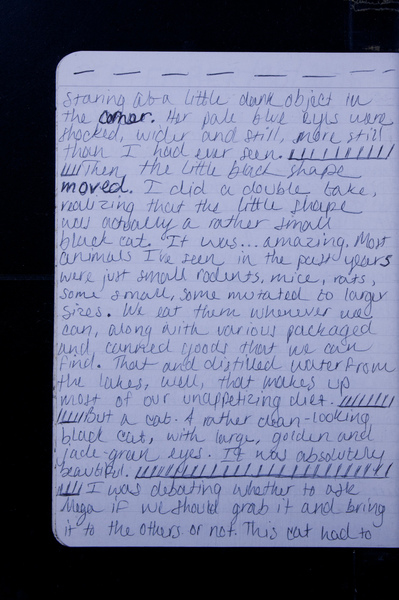 staring at a little dark object in
the corner. Her pale blue eyes were
shocked, wider and still, more still
than I had ever seen.
Then, the little black shape
moved. I did a double take,
realizing that the little shape
was actually a rather small
black cat. It was... amazing. Most
animals I've seen in the past years
were just small rodents, mice, rats,
some small, some mutated to larger
sizes. We eat them whenever we
can, along with various packaged
and canned goods that we can
find. That and distilled water from
the lakes, well, that makes up
most of our unappetizing diet.
But a cat. A rather clean-looking
black cat, with large, golden and
jade-green eyes. It was absolutely
beautiful.
I was debating whether to ask
if we should grab it and bring
it to the others or not. This cat had to